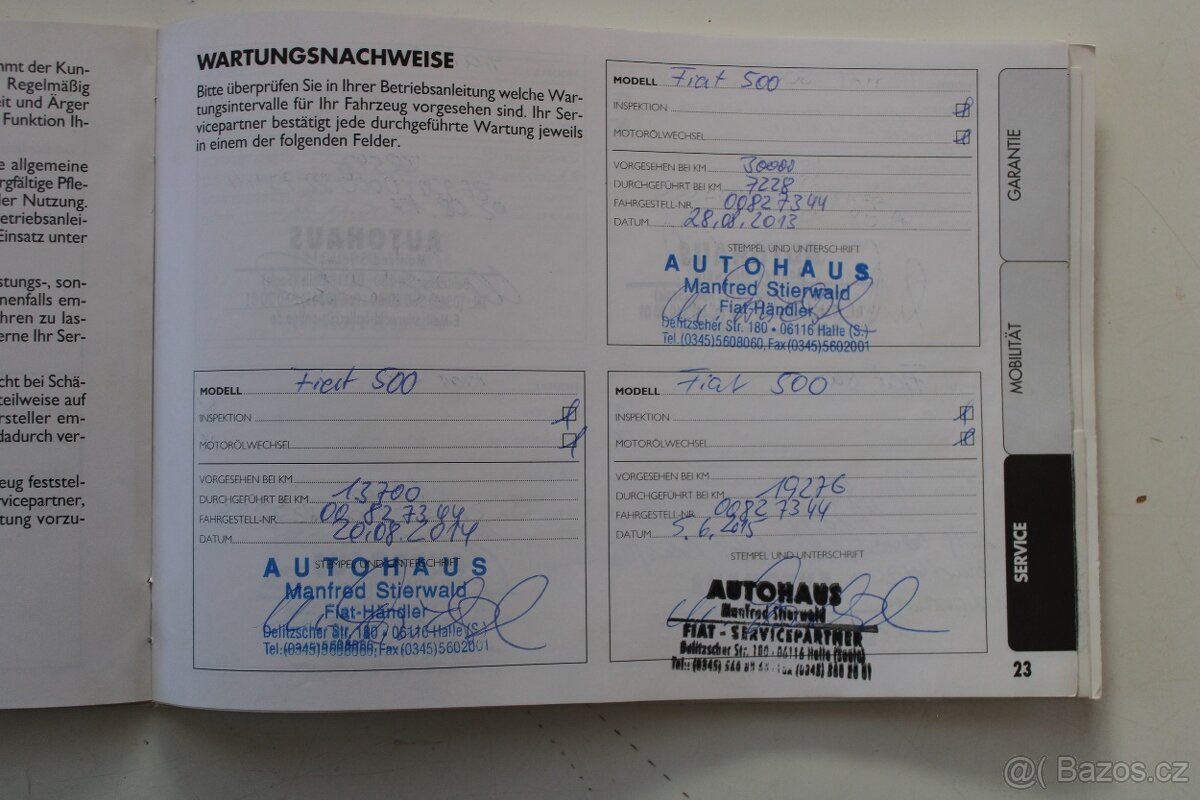 mmt der Kun-
Regelmäßig
eit und Ärger
Funktion Ih-
e allgemeine
rgfältige Pfle-
der Nutzung.
etriebsanlei-
Einsatz unter
stungs-, son-
nenfalls em-
hren zu las-
erne Ihr Ser-
cht bei Schä-
teilweise auf
ersteller em-
dadurch ver-
zeug feststel-
vicepartner,
tung vorzu-
WARTUNGSNACHWEISE
Bitte überprüfen Sie in Ihrer Betriebsanleitung welche War-
tungsintervalle für Ihr Fahrzeug vorgesehen sind. Ihr Ser-
vicepartner bestätigt jede durchgeführte Wartung jeweils
in einem der folgenden Felder.
MODELL Fiat 500
INSPEKTION
MOTORÖLWECHSEL
VORGESEHEN BEI KM 30000
DURCHGEFÜHRT BEI KM 7228
FAHRGESTELL-NR. 00827344
DATUM 28.08.2013
STEMPEL UND UNTERSCHRIFT
AUTOHAUS
Manfred Stierwald
Fiat-Händler
Delitzscher Str. 180 • 06116 Halle (S.)
Tel. (0345)5608060, Fax (0345)5602001
MODELL Fiat 500
INSPEKTION
MOTORÖLWECHSEL
VORGESEHEN BEI KM
DURCHGEFÜHRT BEI KM 13700
FAHRGESTELL-NR. 00827344
DATUM 20.08.2014
STEMPEL UND UNTERSCHRIFT
AUTOHAUS
Manfred Stierwald
Fiat-Händler
Delitzscher Str. 180 • 06116 Halle (S.)
Tel. (0345)5608060, Fax (0345)5602001
MODELL Fiat 500
INSPEKTION
MOTORÖLWECHSEL
VORGESEHEN BEI KM
DURCHGEFÜHRT BEI KM 19276
FAHRGESTELL-NR. 00827344
DATUM 5.6.2015
STEMPEL UND UNTERSCHRIFT
AUTOHAUS
Manfred Stierwald
FIAT - SERVICEPARTNER
Delitzscher Str. 180 • 06116 Halle (Saale)
GARANTIE
MOBILITÄT
SERVICE
23
@( Bazos.cz